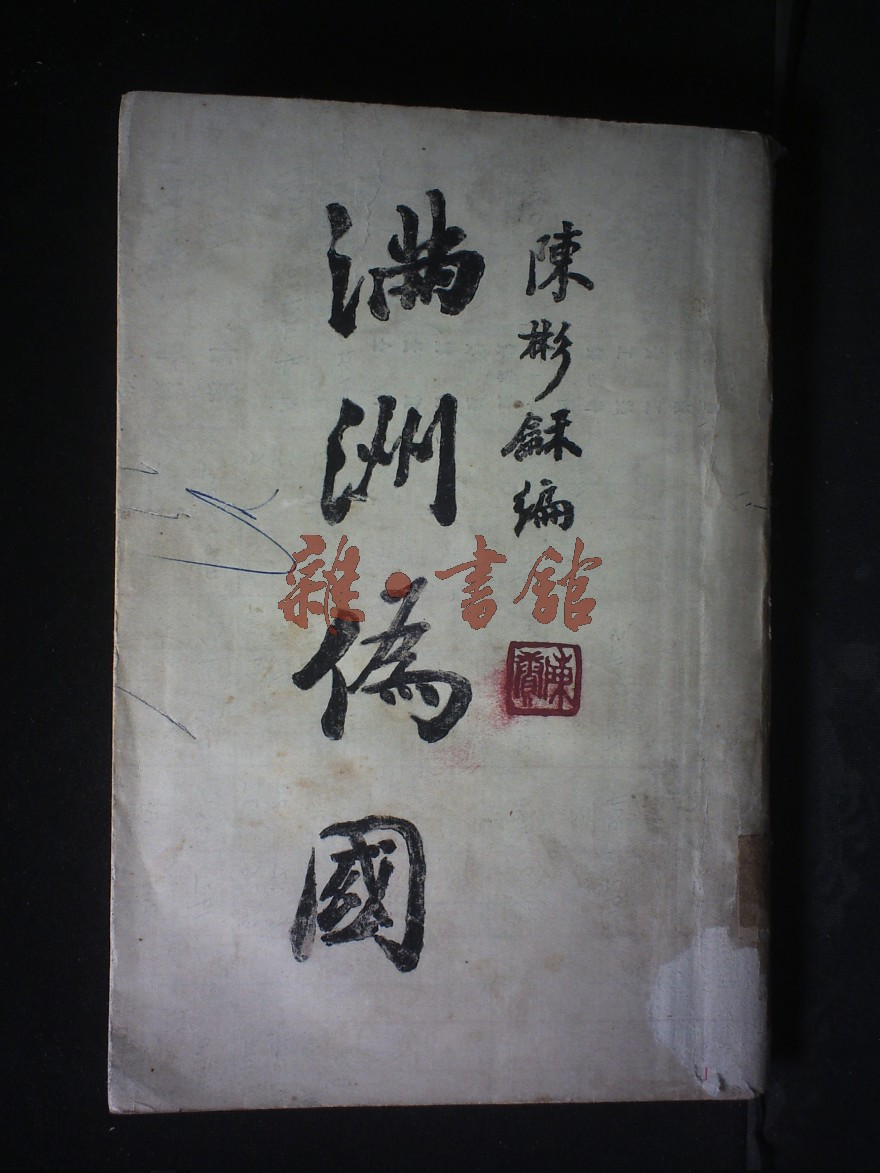 陳彬龢編
滿洲偽國
雜·書館